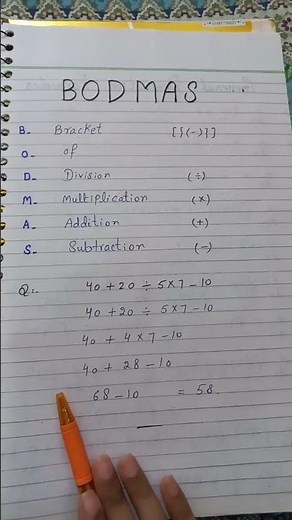 BODMAS
B- Bracket [{(-)}]
O- of
D- Division (÷)
M- Multiplication (×)
A- Addition (+)
S- Subtraction (-)
Q:- 40 + 20 ÷ 5×7 - 10
40 + 20 ÷ 5×7 - 10
40 + 4×7 - 10
40 + 28 - 10
68 - 10 = 58